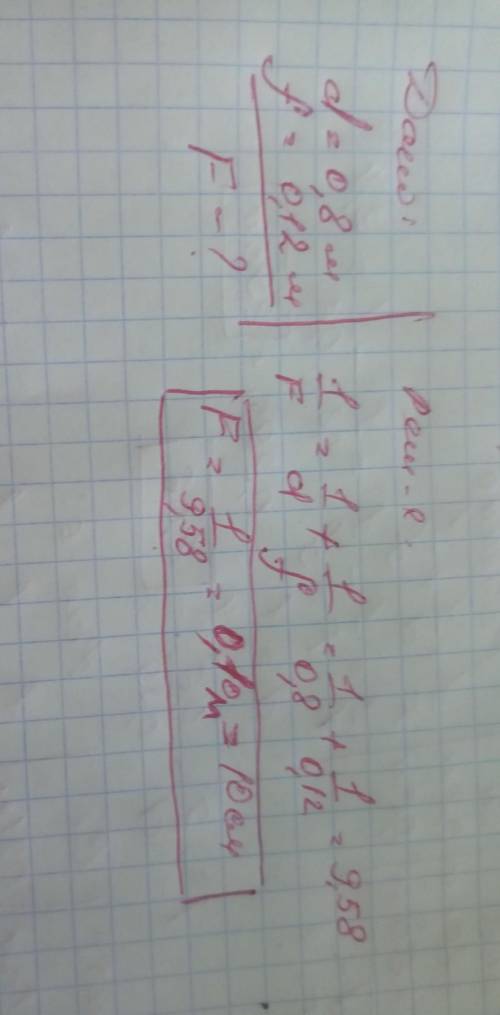 Дано:
d = 0,8 м
f = 0,12 м
F - ?
Реш-е.
1/F = 1/d + 1/f = 1/0,8 + 1/0,12 = 9,58
F = 1/9,58 = 0,10 м = 10 см